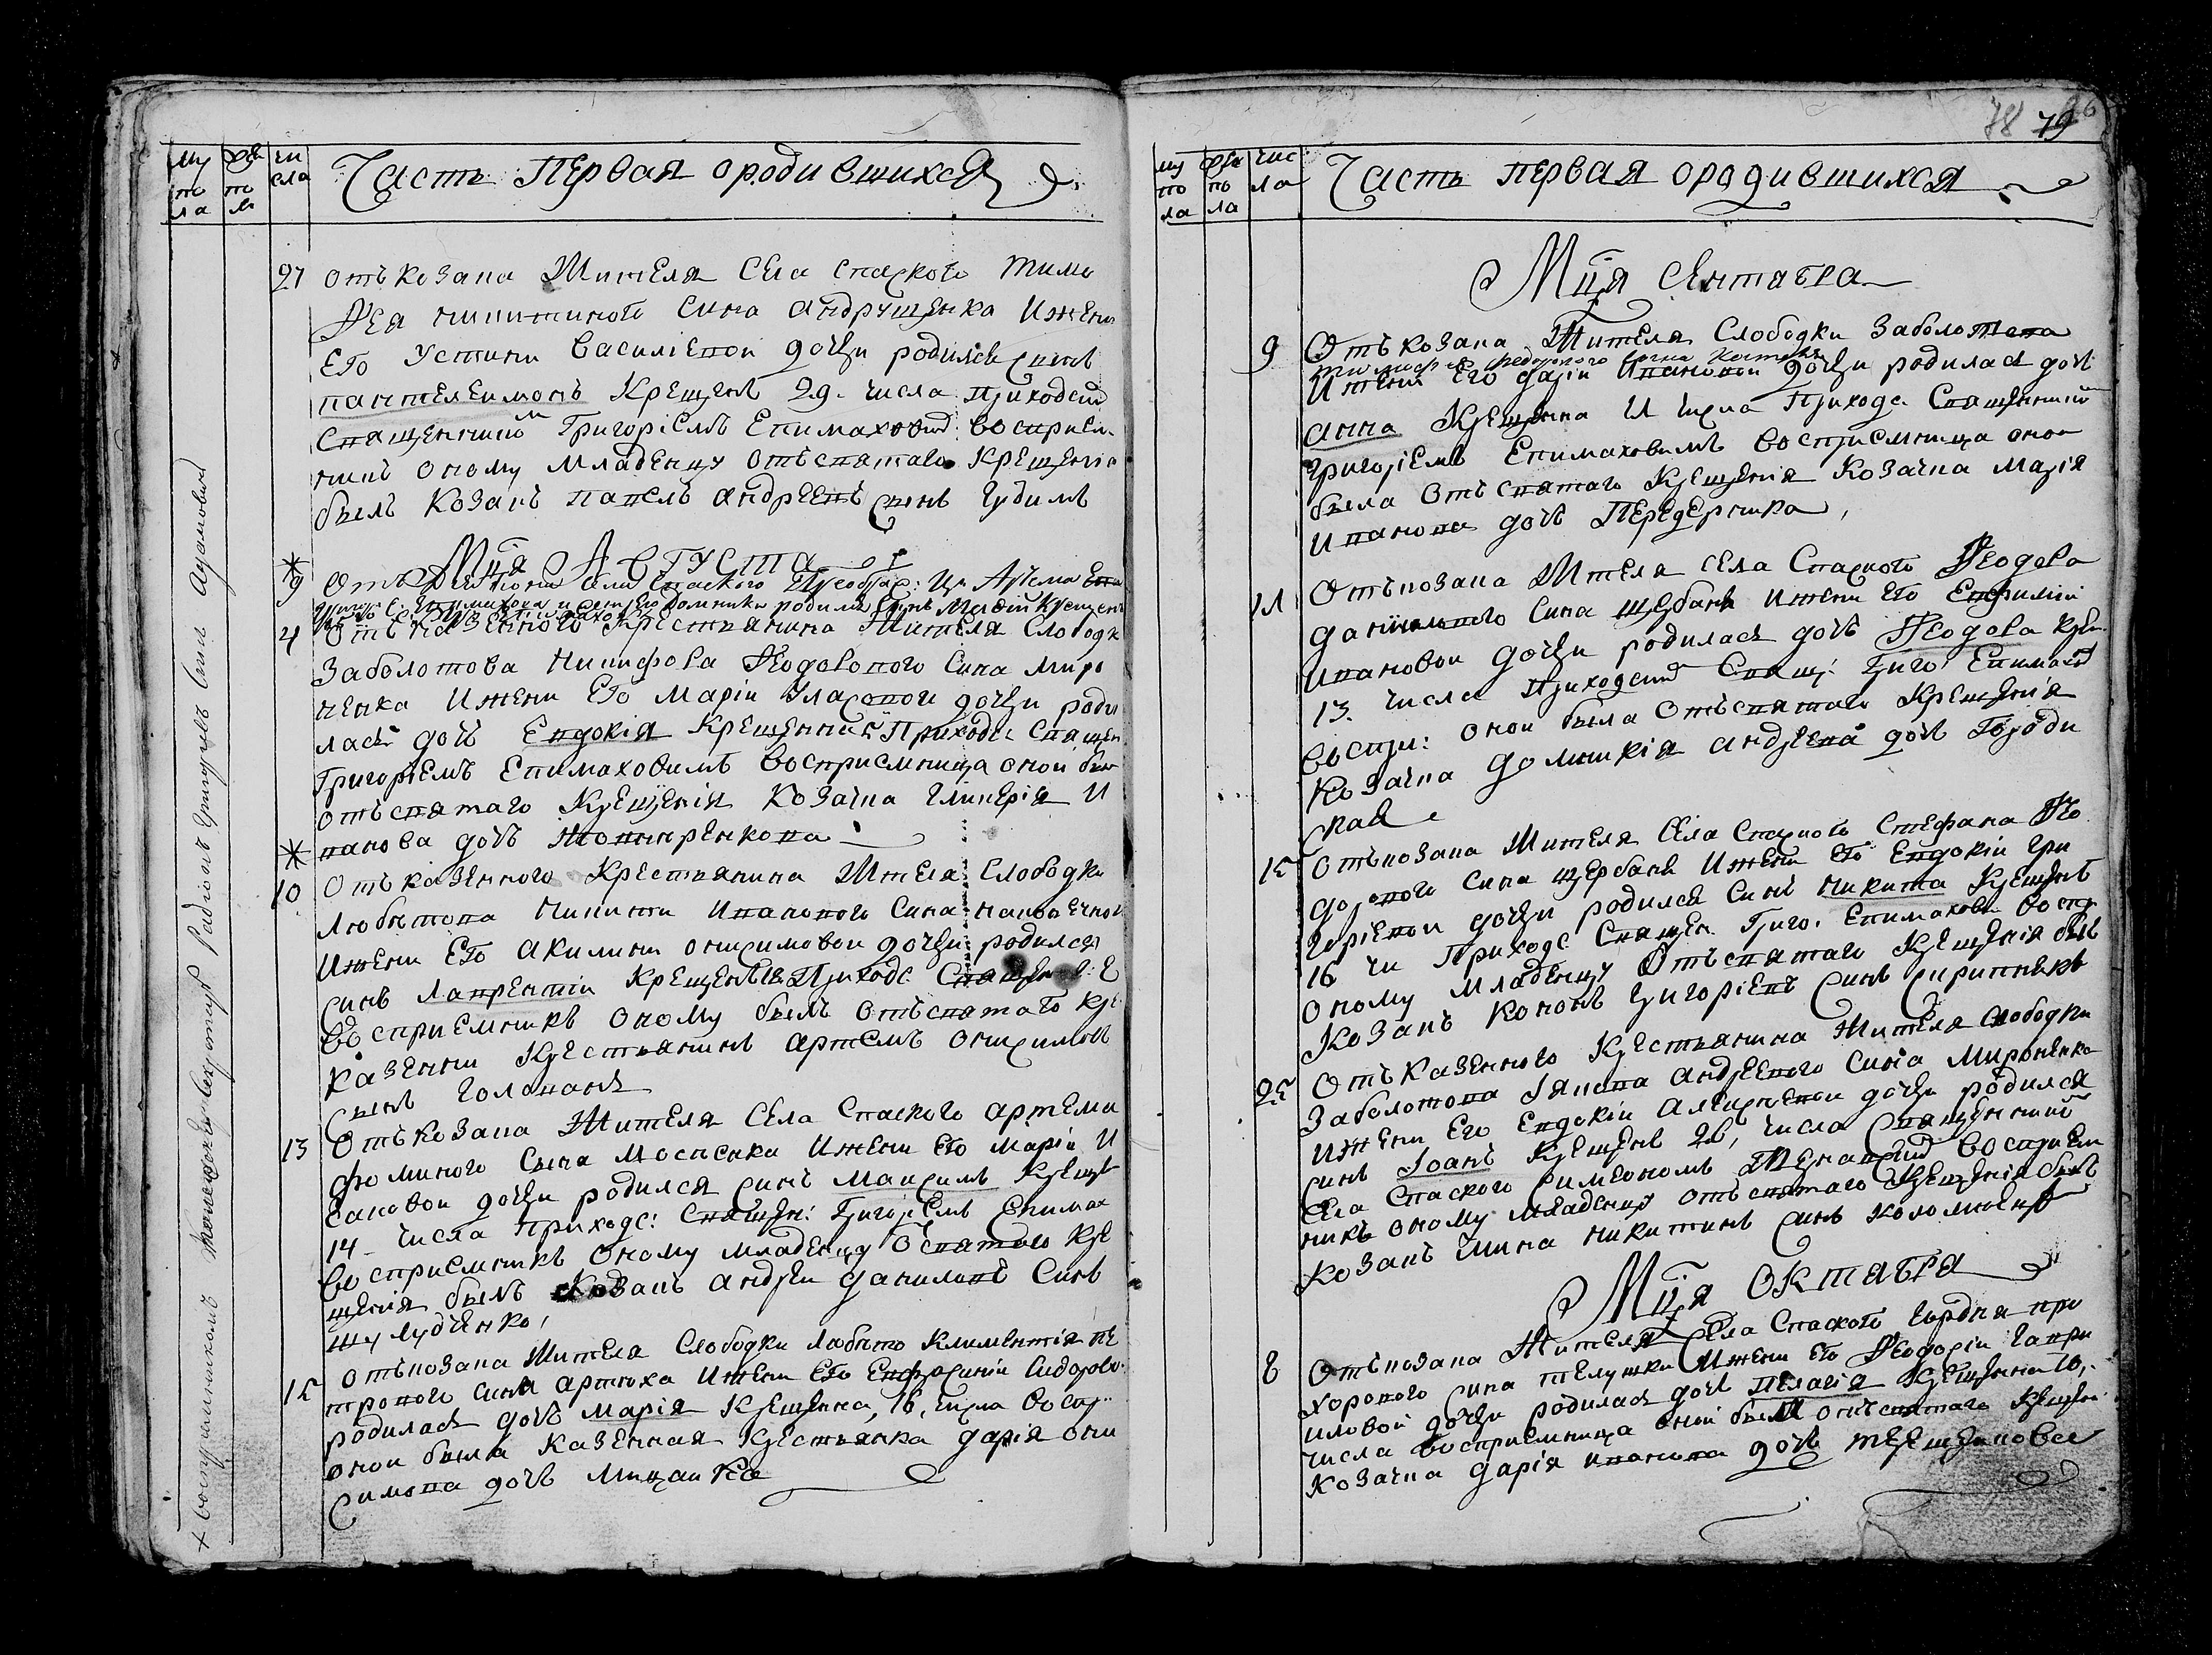 му
по
ла
же
по
л
чи
сла
Часть Первая ородившихся
27 отъ козака Жителя Села спаского Тимо
фея никитиного Сина Андрущенка Ижени
Его Устини Василіевой дочки родился синъ
пантелеимонъ Крещенъ 29. числа приходским
Священникомъ Григоріемъ Епимаховим воспріем
никъ оному младенцу отъ святаго Крещенія
былъ Козакъ павелъ андреевъ сынъ Гудимъ
Мца Августа
9 Отъ села Спаского
родился синъ
4 Отъ казенного Крестьянина Жителя Слободки
Заболотова Никифора Феодорового Сина миро
ненка Ижени Его Маріи Власовой дочки роди
лась дочь Евдокія Крещенна 5 Приходс Священ
Григоріемъ Епимаховимъ воспріемница оной был
отъ святаго Крещенія Козачка Гликерія И
ванова дочь
10 Отъ казенного Крестьянина Жителя Слободки
Любитова Никити Иванового Сина
Ижени Его Акилини онисимовой дочки родился
синъ Лаврентій Крещенъ Приходс
воспріемникъ оному былъ отъ святаго кре
казенни Крестьянинъ артемъ онисимовъ
сынъ головань
13 Отъ козака Жителя Села Спаского артема
фоминого сына Мосіенка Ижени Его Маріи И
саковой дочки родился синъ Максимъ Крещен
14 числа приходс: Священ: Григоріемъ Епимах
воспріемникъ оному младенцу о святаго кре
щенія былъ Козакъ андреи даниловъ Синъ
шулудченко,
15 отъ козака Жителя Слободки Любито Климентія пе
трового сина артюха Ижени Его Евфросиніи Сидоров
родилась дочь марія Крещенна, 16, числа воспр
оной была казенная Крестьянка дарія они
симова дочь Мицайка
+ воспріемникомъ Радіонъ Григорьевъ Синъ Адамовичъ
78 79
му
по
ла
же
по
ла
чис
ла
Часть первая ородившихся
Мца Сентабра
9 Отъ козака Жителя Слободки Заболотова
тимофея федорового сина
Ижени Его даріи Ивановой дочки родилась дочь
анна Крещенна 11 числа Приходс. Священникомъ
григоріемъ Епимаховимъ воспріемница оной
была отъ святаго Крещенія Козачка Марія
иванова дочь Передерчика,
11 Отъ козака Жителя села Спаского Феодора
данилового Сина щербань Ижени Его Евфиміи
ивановой дочки родилась дочь Феодора Крещ
13. числа приходским Свящ: григо: Епимахов
воспри: оной была отъ святаго Крещенія
Козачка домникія андреева дочь Городи
ская
15 Отъ козака Жителя Села Спаского Стефана Фео
дорового сина щербань Ижени Его Евдокіи гри
горіевой дочки родился Синъ никита Крещенъ
16 чи Приходс Священ. Григо. Епимахови воспр
оному младенцу отъ святаго Крещенія былъ
Козакъ кононъ григоріевъ Синъ скрипникъ
25 Отъ казенного Крестьянина Жителя слободки
Заболотова Іякова андреевого Сина Мироненка
Ижени Его Евдокіи алексіевой дочки родился
синъ Іоанъ Крещенъ 26, числа священникомъ
Села Спаского симеономъ воспріем
никъ оному младенцу отъ святаго Крещенія былъ
Козакъ Мина никитинъ Синъ
Мца октабра
8 Отъ козака Жителя Села Спаского Гордѣя про
хорового сина телушки Ижени Его Феодосіи Гаври
иловой дочки родилась дочь пелагія Крещенна 10,
числа воспріемница оной была отъ святаго Крещен
Козачка дарія иванова дочь